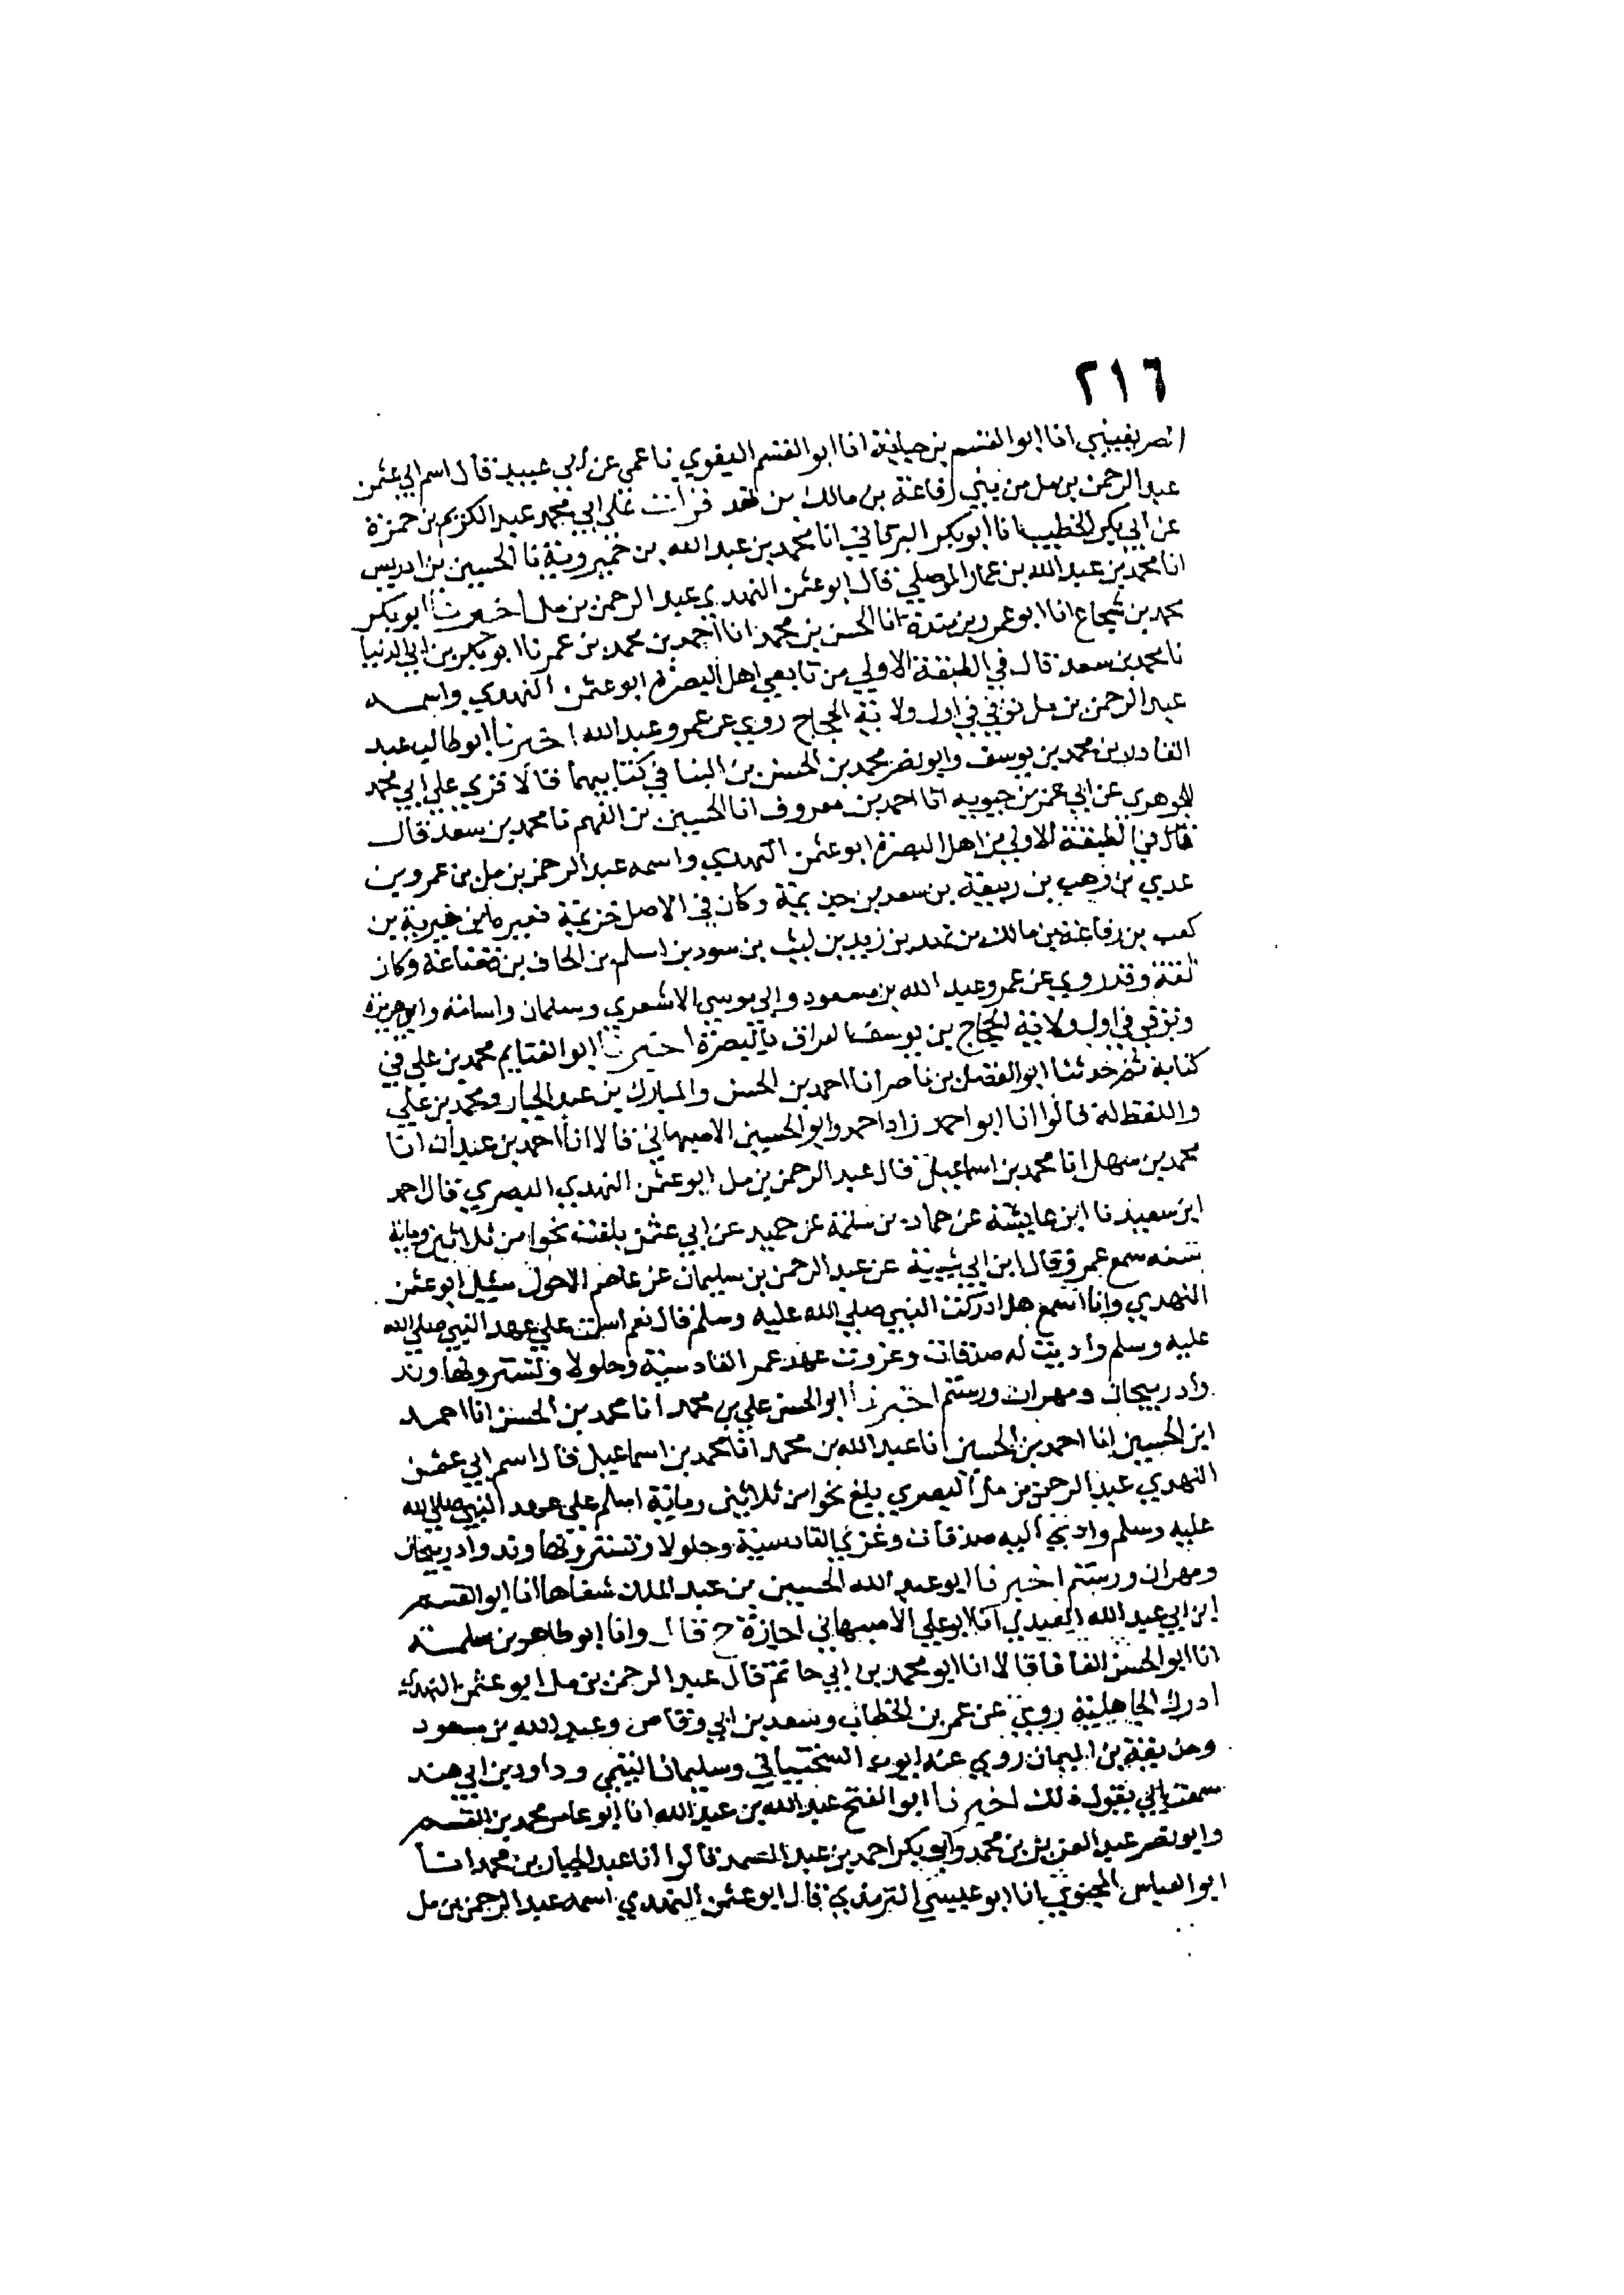 ٢١٦
انا ابو القسم بن حبابة انا ابو القسم البغوي نا عمي عن ابي عبيد قال اسم ابي عثمن
عبد الرحمن بن مل من بني رفاعة بن مالك بن نهد قرأت علي ابي محمد عبد الكريم بن حمزة
عن ابي بكر الخطيب انا ابو بكر البرقاني انا محمد بن عبد الله بن خميروية نا الحسين بن ادريس
انا محمد بن عبد الله بن عمار الموصلي قال ابو عثمن النهدي عبد الرحمن بن مل اخبرنا ابو بكر
محمد بن شجاع انا ابو عمرو بن مندة انا الحسن بن محمد انا احمد بن محمد بن عمر نا ابو بكر بن ابي الدنيا
نا محمد بن سعد قال في الطبقة الاولي من تابعي اهل البصرة ابو عثمن النهدي واسمه
عبد الرحمن بن مل توفي في اول ولاية الحجاج روي عن عمر وعبد الله اخبرنا ابو طالب عبد
القادر بن محمد بن يوسف وابو نصر محمد بن الحسن بن البنا في كتابيهما قالا قري علي ابي محمد
الجوهري عن ابي عمر بن حيويه انا احمد بن معروف انا الحسين بن الفهم نا محمد بن سعد قال
قال في الطبقة الاولي من اهل البصرة ابو عثمن النهدي واسمه عبد الرحمن بن مل بن عمرو بن
عدي بن وهب بن ربيعة بن سعد بن خزيمة وكان في الاصل خزيمة بن
كعب بن رفاعة بن مالك بن نهد بن زيد بن ليث بن سود بن اسلم بن الحاف بن قضاعة وكان
ثقة وقد روي عن عمر وعبد الله بن مسعود وابي موسي الاشعري وسلمان واسامة وابو هريرة
وتوفي في اول ولاية الحجاج بن يوسف العراق بالبصرة اخبرنا ابو الغنايم محمد بن علي في
كتابة ثم حدثنا ابو الفضل بن ناصر انا احمد بن الحسن والمبارك بن عبد الجبار ومحمد بن علي
واللفظ له قالوا انا ابو احمد زاد احمد وابو الحسين الاصبهاني قالا انا احمد بن عبدان انا
محمد بن سهل انا محمد بن اسماعيل قال عبد الرحمن بن مل ابو عثمن النهدي البصري قال احمد
ابن سعيد نا ابن عايشة عن حماد بن سلمة عن حميد عن ابي عثمن بلغت نحوا من ثلاثين وماية
سنه سمع عمر وقال ابن ابي شيبة عن عبد الرحمن بن سليمان عن عاصم الاحول سئيل ابو عثمن
النهدي وانا اسمع هل ادركت النبي صلي الله عليه وسلم قال نعم اسلمت علي عهد النبي صلي الله
عليه وسلم وأديت له صدقات وغزوت عهد عمر القادسية وجلولا وتستر ونهاوند
وأدربيجان ومهران ورستم اخبرنا ابو الحسن علي بن محمد انا محمد بن الحسن انا احمد
ابن الحسين انا احمد بن الحسين انا عبد الله بن محمد انا محمد بن اسماعيل قال اسم ابي عثمن
النهدي عبد الرحمن بن مل البصري بلغ نحوا من ثلاثين وماية اسلم علي عهد النبي صلي الله
عليه وسلم وادي اليه صدقات وغزي القادسية وجلولا وتستر ونهاوند وادربيجان
ومهران ورستم اخبرنا ابو عبد الله الحسين بن عبد الملك شفاها انا ابو القسم
ابن ابي عبد الله العبدي انا ابو علي الاصبهاني اجازة ح قال وانا ابو طاهر بن سلمة
انا ابو الحسن الفافا قالا انا ابو محمد بن ابي حاتم قال عبد الرحمن بن مل ابو عثمن النهدي
ادرك الجاهلية روي عن عمر بن الخطاب وسعد بن ابي وقاص وعبد الله بن مسعود
وحذيفة بن اليمان روي عنه ايوب السختياني وسليمان التيمي وداود بن ابي هند
سمعت ابي يقول ذلك اخبرنا ابو الفتح عبد الله بن عبد الله انا ابو عامر محمد بن القسم
وابو نصر عبد العزيز بن محمد وابو بكر احمد بن عبد الصمد قالوا انا عبد الجبار بن محمد انا
ابو العباس المحبوبي انا ابو عيسي الترمذي قال ابو عثمن النهدي اسمه عبد الرحمن بن مل